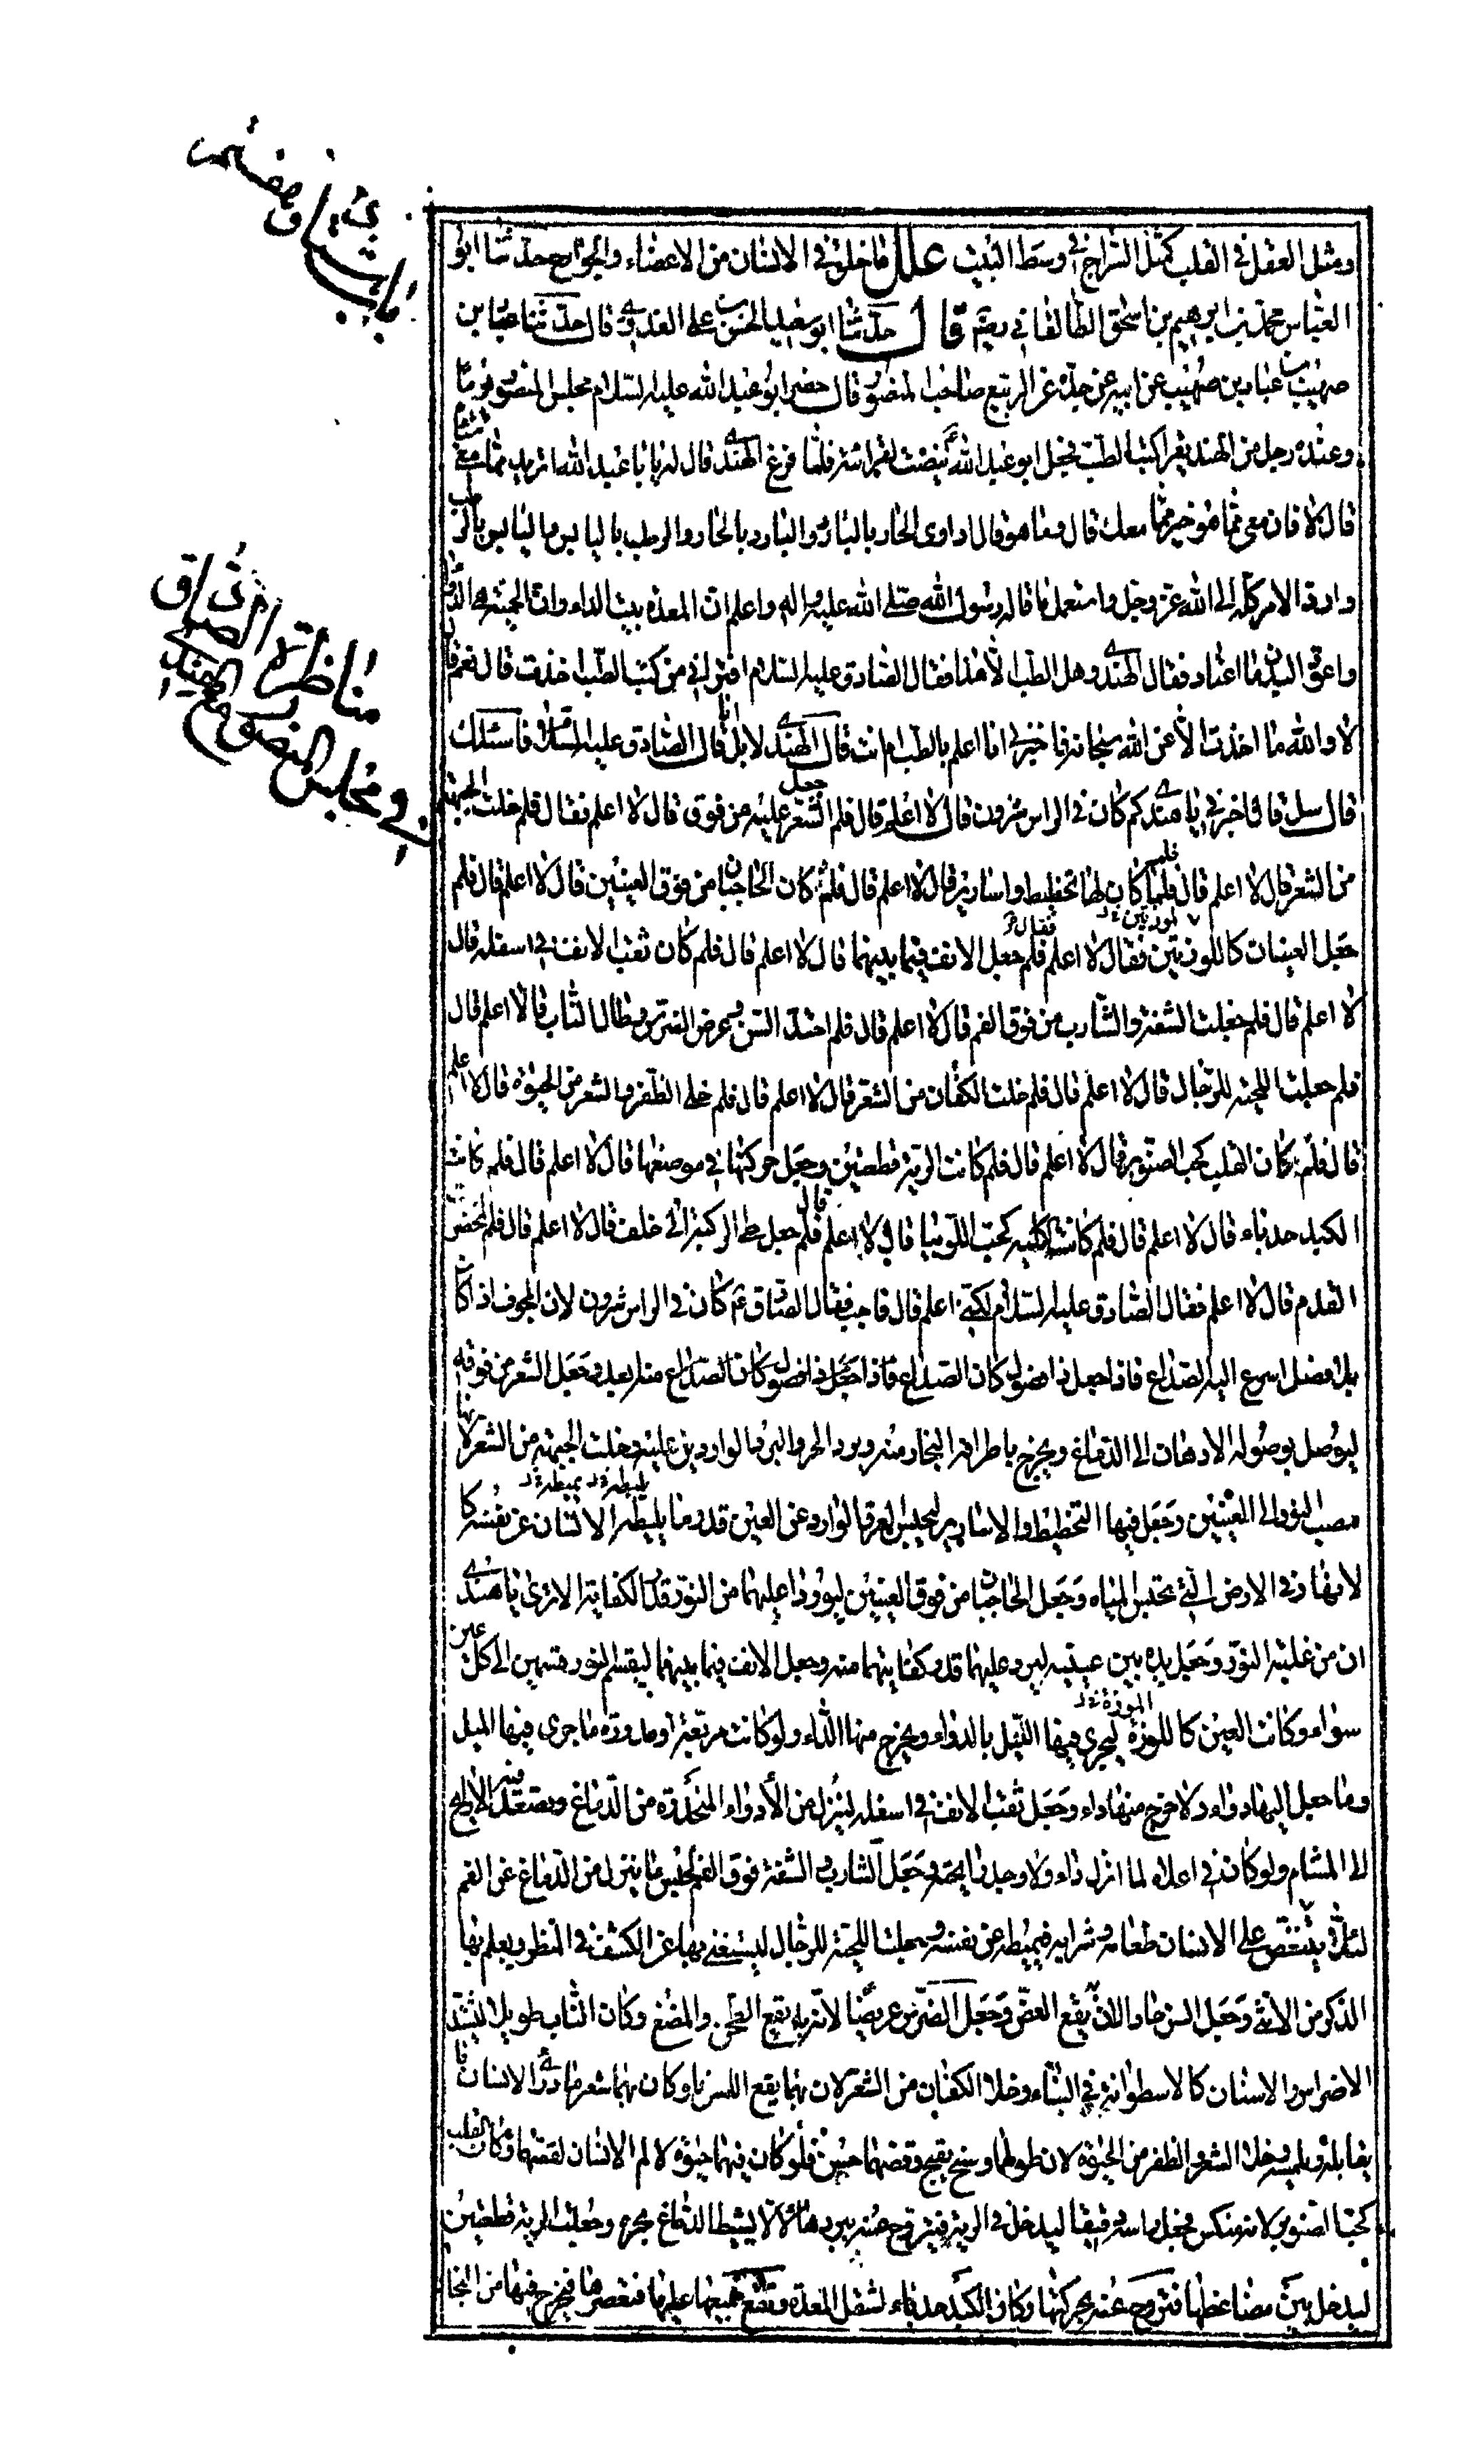 ومثل العقل في القلب كمثل السراج في وسط البيت علل ما خلق في الانسان من الاعضاء والجوارح حدثنا ابو
العباس محمد بن ابرهيم بن اسحق الطالقاني رضه قال حدثنا ابو سعيد الحسن بن علي العدوي قال حدثنا عباد بن
صهيب بن عباد بن صهيب عن ابيه عن جده عن الربيع صاحب المنصور قال حضر ابو عبد الله عليه السلام مجلس المنصور يوما
وعنده رجل من الهند يقرا كتب الطب فجعل ابو عبد الله ع ينصت لقرائته فلما فرغ الهندي قال له يا با عبد الله اتريد مما معي شيئا
قال لا فان معي مما هو خير مما معك قال وما هو قال اداوي الحار بالبارد والبارد بالحار والرطب باليابس واليابس بالرطب
وارد الامر كله الى الله عز وجل واستعمل ما قاله رسول الله صلى الله عليه واله واعلم ان المعدة بيت الداء وان الحمية هي الدواء
واعود البدن ما اعتاد فقال الهندي وهل الطب الا هذا فقال الصادق عليه السلام افتراني من كتب الطب اخذت قال نعم قال
لا والله ما اخذت الا عن الله سبحانه فاخبرني انا اعلم بالطب ام انت قال الهندي لا بل انا قال الصادق عليه السلام فاسئلك شيئا
قال سل قال اخبرني يا هندي كم كان في الراس شؤون قال لا اعلم قال فلم جعل الشعر عليه من فوق قال لا اعلم فقال فلم خلت الجبهة
من الشعر قال لا اعلم قال فلم كان لها تخطيط واسارير قال لا اعلم قال فلم كان الحاجبان من فوق العينين قال لا اعلم قال فلم
جعل العينان كاللوزتين فقال لا اعلم قال فلم جعل الانف فيما بينهما قال لا اعلم قال فلم كان ثقب الانف في اسفله قال
لا اعلم قال فلم جعلت الشفة والشارب من فوق الفم قال لا اعلم قال فلم احتد السن وعرض الضرس وطال الناب قال لا اعلم قال
فلم جعلت اللحية للرجال قال لا اعلم قال فلم خلت الكفان من الشعر قال لا اعلم قال فلم خلى الظفر والشعر من الحيوة قال لا اعلم
قال فلم كان القلب كحب الصنوبر قال لا اعلم قال فلم كانت الرية قطعتين وجعل حركتها في موضعها قال لا اعلم قال فلم كانت
الكبد حدباء قال لا اعلم قال فلم كانت الكلية كحب اللوبيا قال لا اعلم قال فلم جعل طي الركبة الى خلف قال لا اعلم قال فلم تخصرت
القدم قال لا اعلم فقال الصادق عليه السلام لكني اعلم قال فاجب فقال الصادق ع كان في الراس شؤون لان المجوف اذا كان
بلا فصل اسرع اليه الصداع فاذا جعل ذا فصول كان الصداع منه ابعد وجعل الشعر من فوقه
ليوصل بوصوله الادهان الى الدماغ ويخرج باطرافه البخار منه ويرد الحر والبرد الواردين عليه وخلت الجبهة من الشعر لانها
مصب النور الى العينين وجعل فيها التخطيط والاسارير ليحبس العرق الوارد عن العين قدر ما يميطه الانسان عن نفسه كا
لانهار في الارض التي تحتبس المياه وجعل الحاجبان من فوق العينين ليوردا عليهما من النور قدر الكفاية الا ترى يا هندي
ان من غلبه النور وجعل يده بين عينيه ليرد عليهما قدر كفايتهما منه وجعل الانف فيما بينهما ليقسم النور قسمين الى كل عين
سواء وكانت العين كاللوزة ليجري فيها الميل بالدواء ويخرج منها الداء ولو كانت مربعة او مدورة ما جرى فيها الميل
وما وصل اليها دواء ولا خرج منها داء وجعل ثقب الانف في اسفله لينزل منه الادواء المتحدرة من الدماغ وتصعد فيه الاراييح
الى المشام ولو كان في اعلاه لما انزل داء ولا وجد رايحة وجعل الشارب والشفة فوق الفم لحبس ما ينزل من الدماغ عن الفم
لئلا يتنغص على الانسان طعامه وشرابه فيميطه عن نفسه وجعلت اللحية للرجال ليستغنى بها عن الكشف في المنظر ويعلم بها
الذكر من الانثى وجعل السن حادا لان به يقع العض وجعل الضرس عريضا لان به يقع الطحن والمضغ وكان الناب طويلا ليشتد
الاضراس والاسنان كالاسطوانة في البناء وخلا الكفان من الشعر لان بهما يقع اللمس فلو كان بهما شعر ما درى الانسان ما
يقابله ويلمسه وخلا الشعر والظفر من الحيوة لان طولهما وسخ يقبح وقصهما حسن فلو كان فيهما حيوة لالم الانسان لقصهما وكان القلب
كحب الصنوبر لانه منكس فجعل راسه دقيقا ليدخل في الرية فيتروح عنه ببردها لئلا يشيط الدماغ بحره وجعلت الرية قطعتين
ليدخل بين مضاغطها فتروح عنه بحركتها وكان الكبد حدباء لتثقل المعدة وتقع جميعها عليها فتعصرها فيخرج ما فيها من البخار
مناظرة الصادق
مع الهندي
في مجلس المنصور